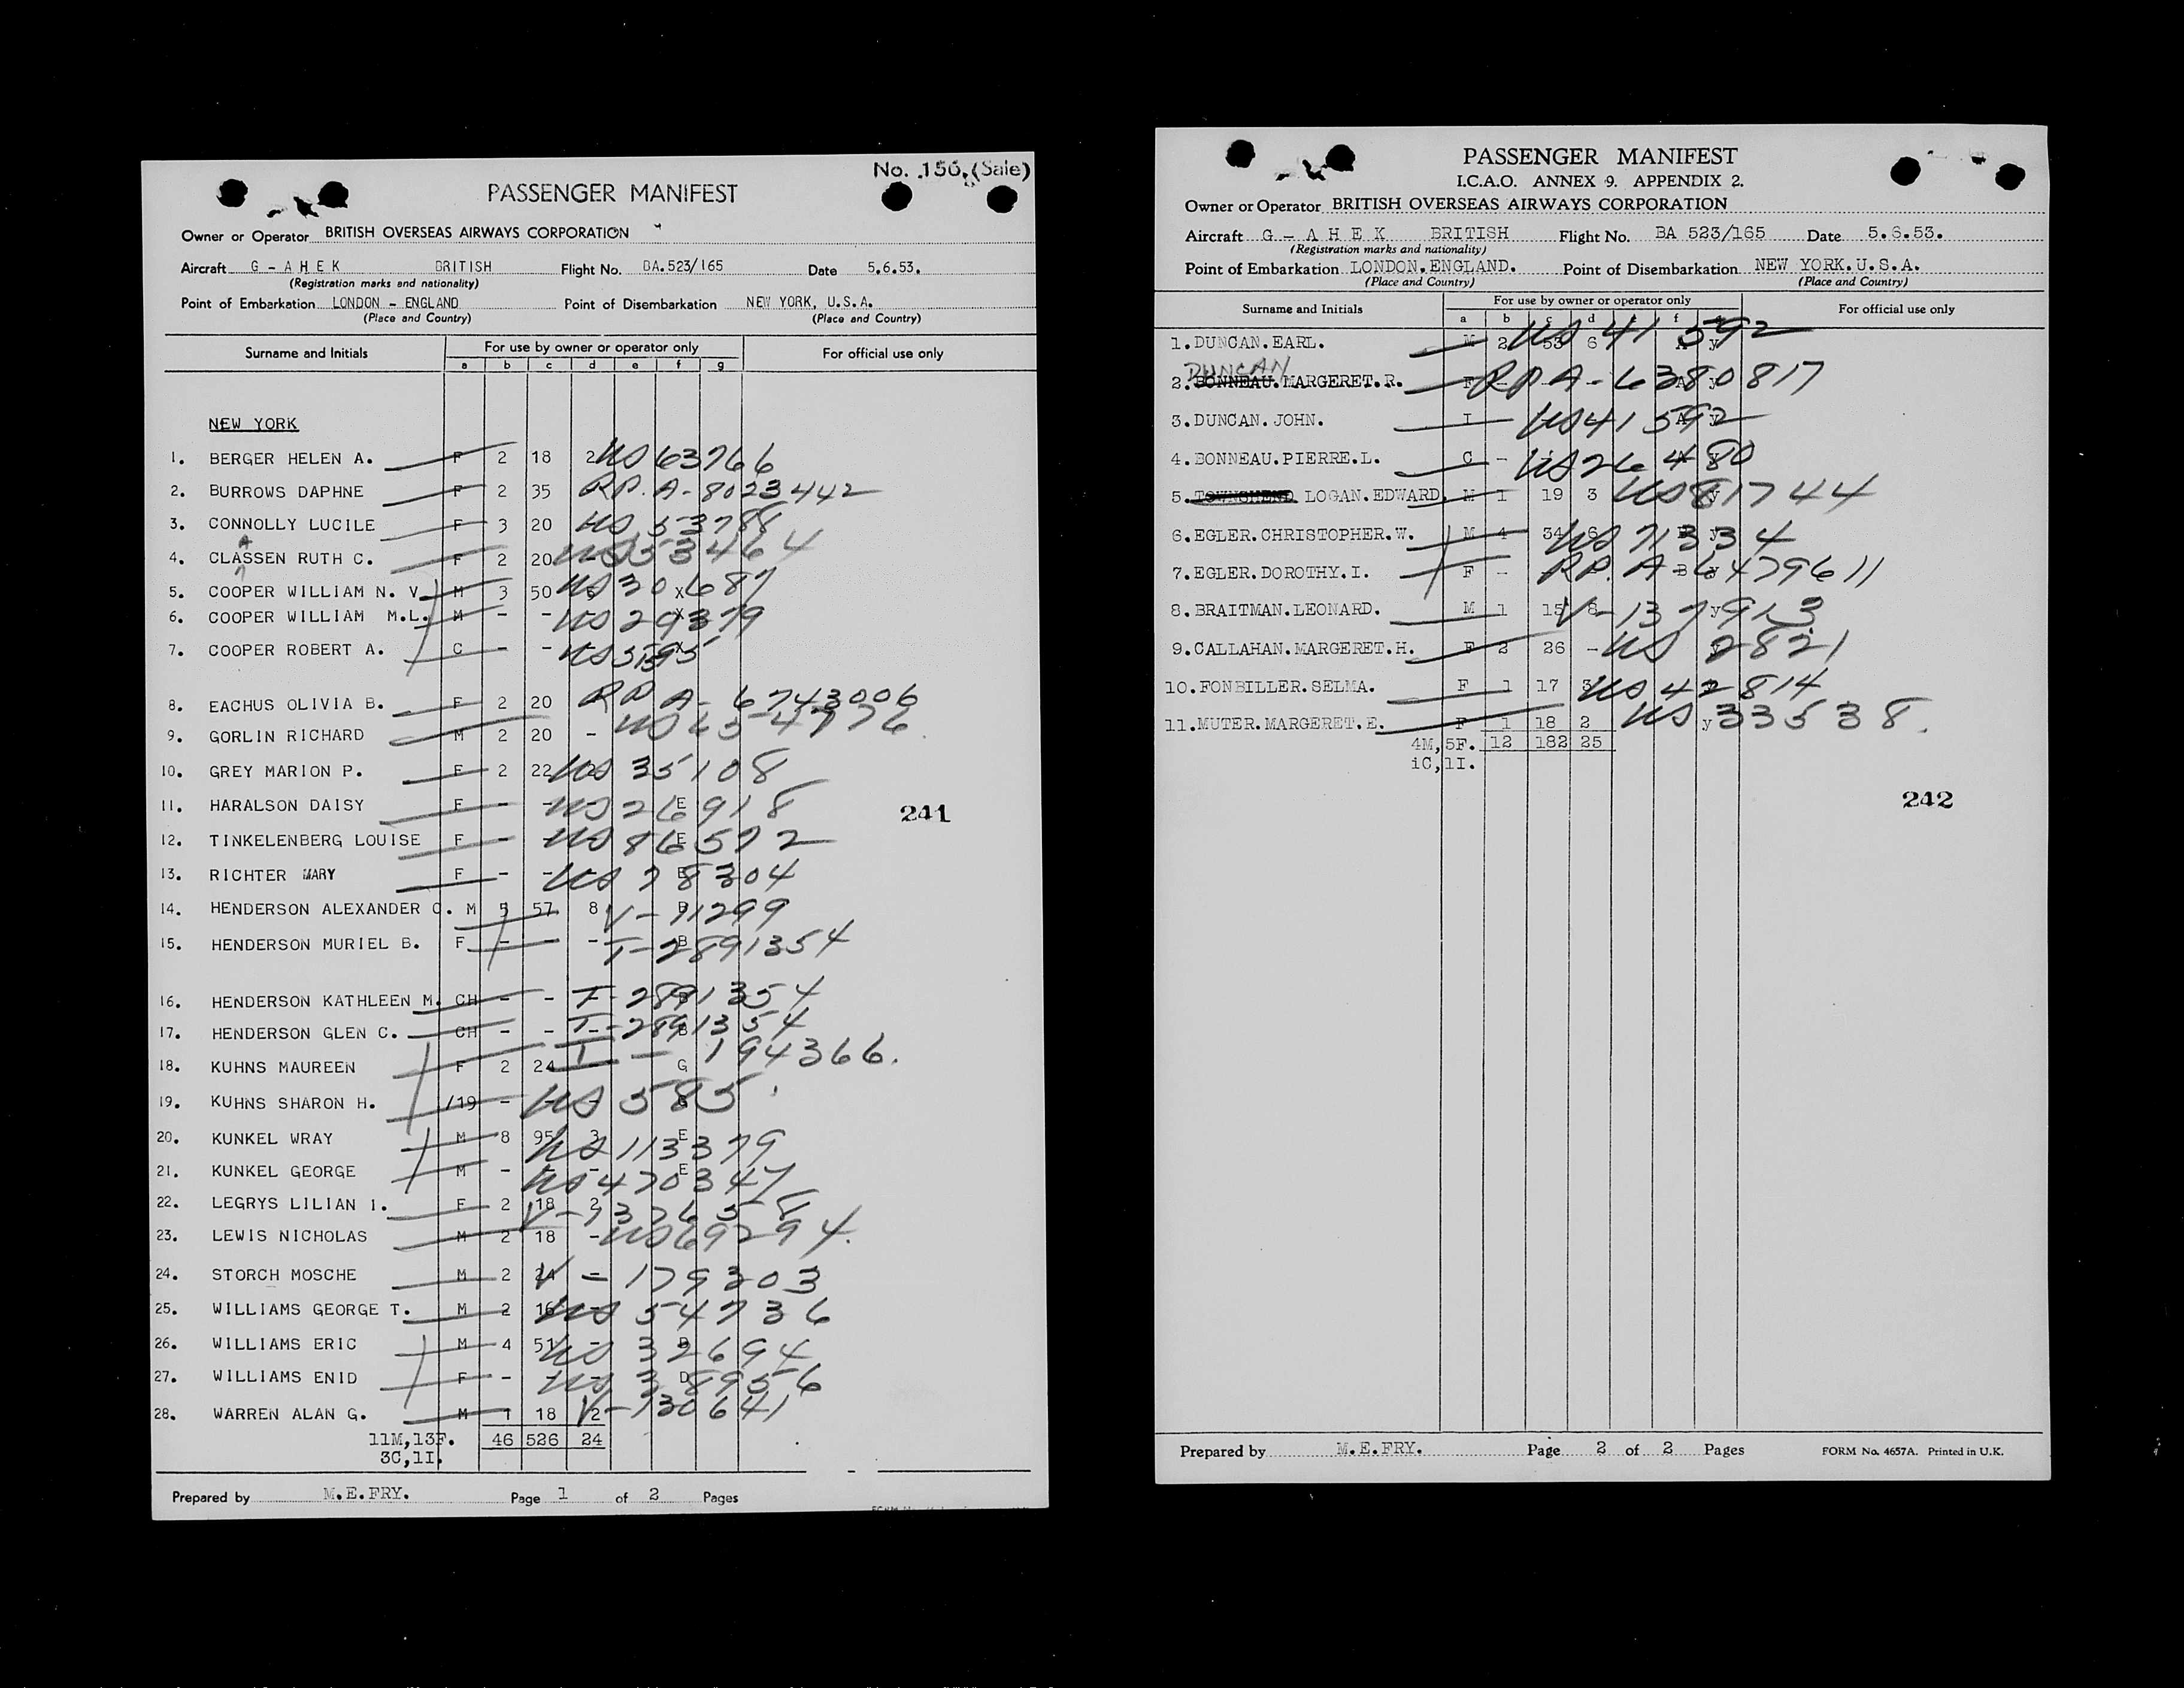 No. 156. (Sale)
PASSENGER MANIFEST
Owner or Operator BRITISH OVERSEAS AIRWAYS CORPORATION
Aircraft G - A H E K BRITISH Flight No. BA.523/165 Date 5.6.53.
(Registration marks and nationality)
Point of Embarkation LONDON - ENGLAND Point of Disembarkation NEW YORK, U.S.A.
(Place and Country) (Place and Country)
Surname and Initials For use by owner or operator only For official use only
a b c d e f g
NEW YORK
1. BERGER HELEN A. F 2 18 2 US 63766
2. BURROWS DAPHNE F 2 35 RP. A-8023442
3. CONNOLLY LUCILE F 3 20 US 53788
4. CLASSEN RUTH C. F 2 20 - US 53464
5. COOPER WILLIAM N. V. M 3 50 X US 30687
6. COOPER WILLIAM M.L. M - - X US 29379
7. COOPER ROBERT A. C - - US 51595
8. EACHUS OLIVIA B. F 2 20 RP A- 6743006
9. GORLIN RICHARD M 2 20 - US
10. GREY MARION P. F 2 22 US 35108
241
11. HARALSON DAISY F - - E US 26918
12. TINKELENBERG LOUISE F - - E US 86572
13. RICHTER MARY F - - E US 78304
14. HENDERSON ALEXANDER C. M 5 57 8 B V-71299
15. HENDERSON MURIEL B. F - - - B T-2891354
16. HENDERSON KATHLEEN M. CH - - - B T-2891354
17. HENDERSON GLEN C. CH - - - B T-2891354
18. KUHNS MAUREEN F 2 24 - G T - 194366.
19. KUHNS SHARON H. /19 - - - US 585
20. KUNKEL WRAY M 8 95 3 E US 113379
21. KUNKEL GEORGE M - - - E US 470347
22. LEGRYS LILIAN I. F 2 18 2 V-137658
23. LEWIS NICHOLAS M 2 18 - US 69294.
24. STORCH MOSCHE M 2 24 - V-179303
25. WILLIAMS GEORGE T. M 2 16 - US 54736
26. WILLIAMS ERIC M 4 51 - D US 32694
27. WILLIAMS ENID F - - - D US 38956
28. WARREN ALAN G. M 1 18 2 V-130641
11M,13F. 46 526 24
3C,1I.
Prepared by M.E.FRY. Page 1 of 2 Pages
PASSENGER MANIFEST
I.C.A.O. ANNEX 9. APPENDIX 2.
Owner or Operator BRITISH OVERSEAS AIRWAYS CORPORATION
Aircraft G - A H E K BRITISH Flight No. BA 523/165 Date 5.6.53.
(Registration marks and nationality)
Point of Embarkation LONDON.ENGLAND. Point of Disembarkation NEW YORK.U.S.A.
(Place and Country) (Place and Country)
Surname and Initials For use by owner or operator only For official use only
a b c d e f
1.DUNCAN.EARL. M 2 53 6 A y US 41592
DUNCAN
2.BONNEAU.MARGERET.R. F - A y RP A-6380817
3.DUNCAN.JOHN. I - A y US 41592
4.BONNEAU.PIERRE.L. C - - y US 26480
5.TOWNSHEND LOGAN.EDWARD. M 1 19 3 y US 81744
6.EGLER.CHRISTOPHER.W. M 4 34 6 B y US 71334
7.EGLER.DOROTHY.I. F - - B y RP. A-6479611
8.BRAITMAN.LEONARD. M 1 15 8 y V-137913
9.CALLAHAN.MARGERET.H. F 2 26 - y US 2821
10.FONBILLER.SELMA. F 1 17 3 US 42814
11.MUTER.MARGERET.E. F 1 18 2 y US 33538.
4M,5F. 12 182 25
1C,1I.
242
Prepared by M.E.FRY. Page 2 of 2 Pages FORM No. 4657A. Printed in U.K.